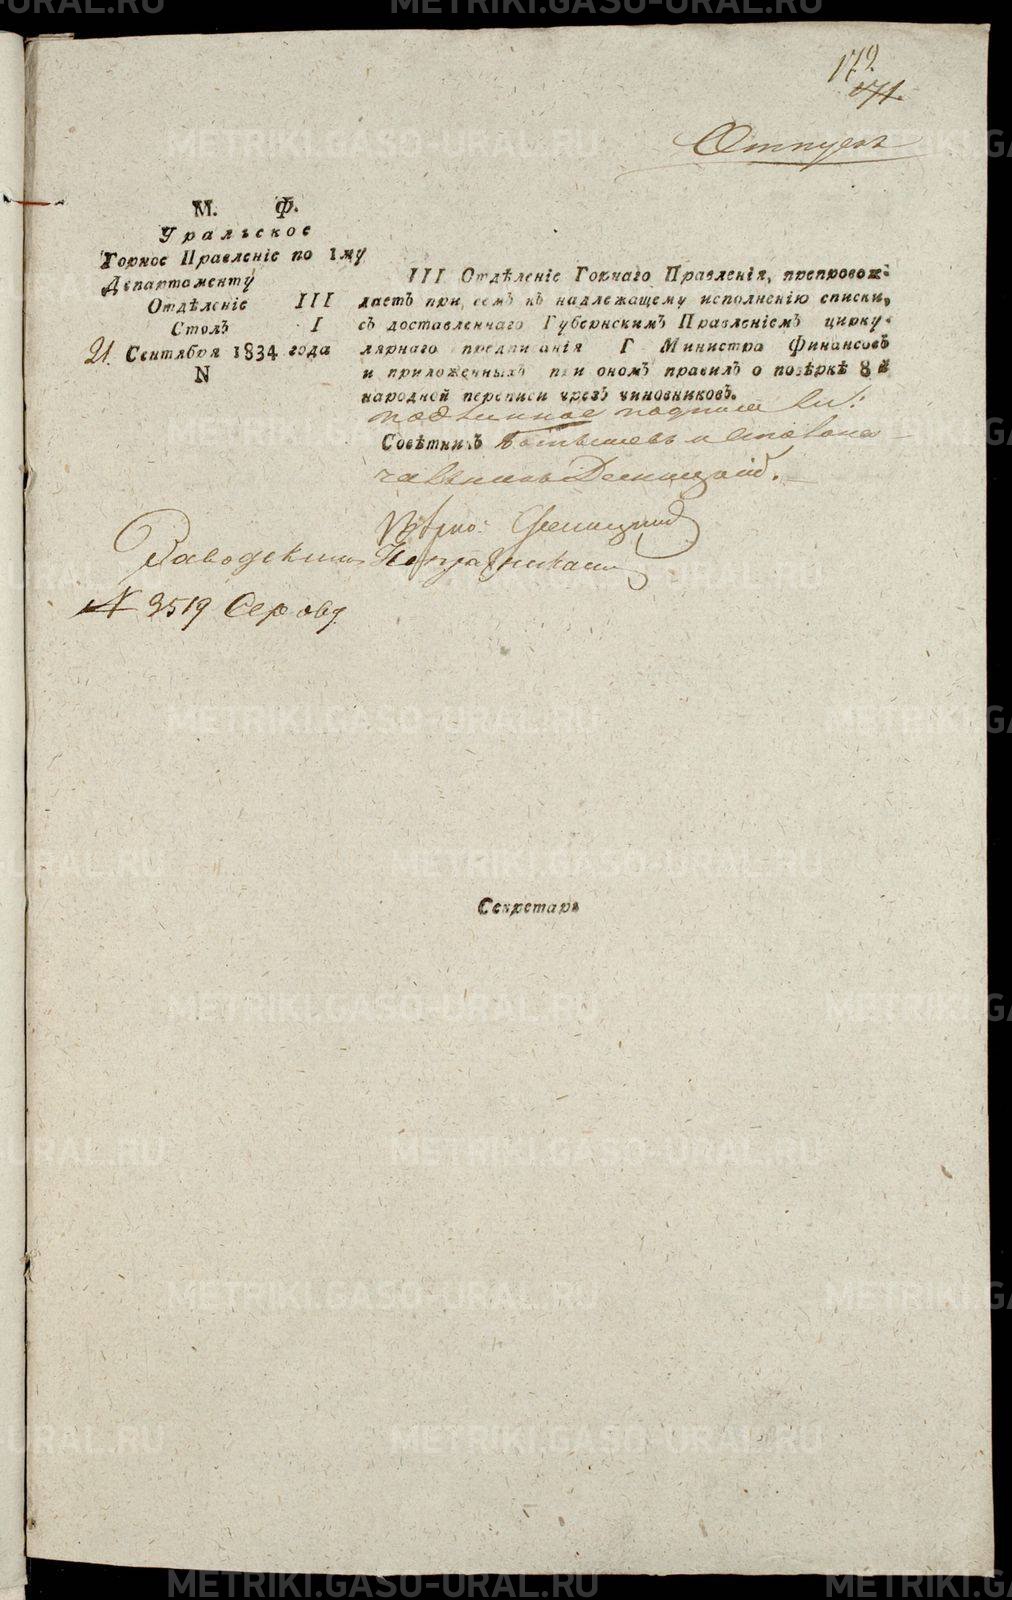 179.
171.
Отпускъ
М. Ф.
Уральское
Горное Правленіе по 1му
Департаменту
Отдѣленіе III
Столъ I
21 Сентября 1834 года
N
III Отдѣленіе Горнаго Правленія, препровож-
даетъ при семъ къ надлежащему исполненію списки,
съ доставленнаго Губернскимъ Правленіемъ цирку-
лярнаго предписанія Г Министра Финансовъ
и приложенныхъ при ономъ правилъ о повѣркѣ 8й
народной переписи чрезъ чиновниковъ.
подлинное подписали:
Совѣтникъ и Столона
чальникъ
Вѣрно:
Заводскимъ Исправникамъ
N 3519
Секретарь
METRIKI.GASO-URAL.RU